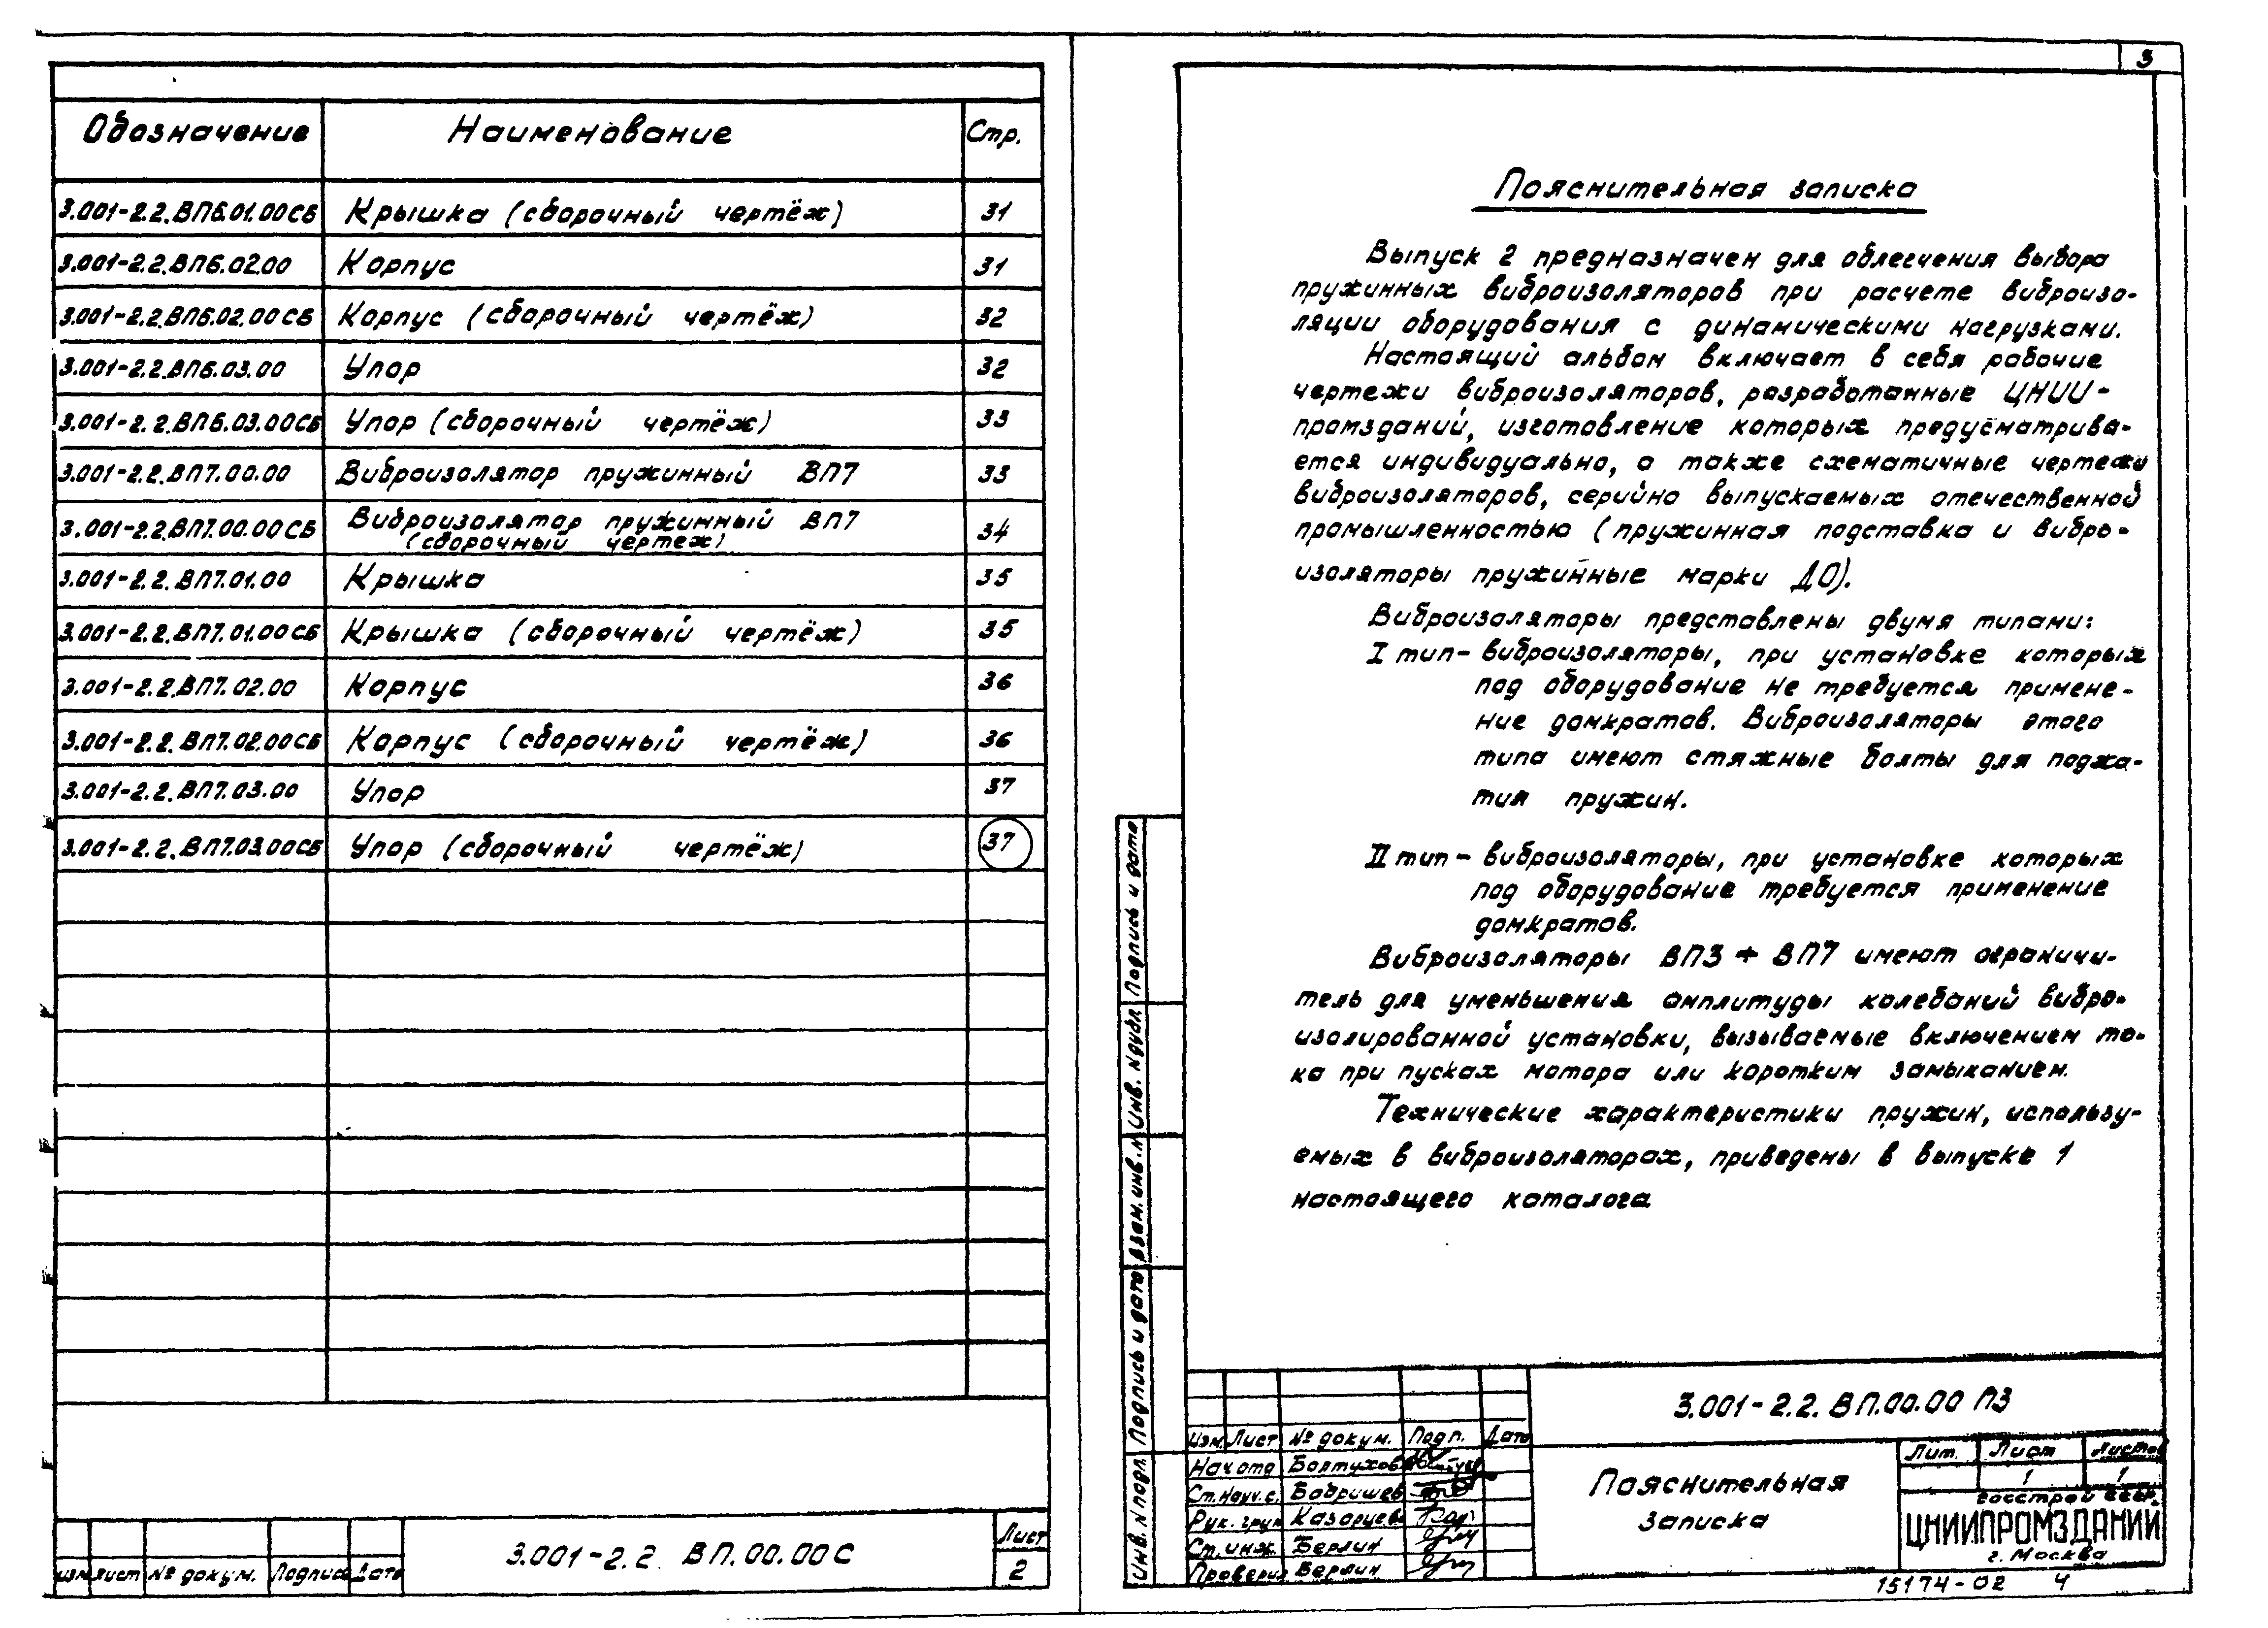 Обозначение Наименование Стр.
3.001-2.2.ВП6.01.00СБ Крышка (сборочный чертёж) 31
3.001-2.2.ВП6.02.00 Корпус 31
3.001-2.2.ВП6.02.00СБ Корпус (сборочный чертёж) 32
3.001-2.2.ВП6.03.00 Упор 32
3.001-2.2.ВП6.03.00СБ Упор (сборочный чертёж) 33
3.001-2.2.ВП7.00.00 Виброизолятор пружинный ВП7 33
3.001-2.2.ВП7.00.00СБ Виброизолятор пружинный ВП7
(сборочный чертеж) 34
3.001-2.2.ВП7.01.00 Крышка 35
3.001-2.2.ВП7.01.00СБ Крышка (сборочный чертёж) 35
3.001-2.2.ВП7.02.00 Корпус 36
3.001-2.2.ВП7.02.00СБ Корпус (сборочный чертёж) 36
3.001-2.2.ВП7.03.00 Упор 37
3.001-2.2.ВП7.03.00СБ Упор (сборочный чертёж) 37
Изм. Лист № докум. Подпись Дата
3.001-2.2 ВП.00.00С
Лист
2
3
Пояснительная записка
Выпуск 2 предназначен для облегчения выбора
пружинных виброизоляторов при расчете виброизо-
ляции оборудования с динамическими нагрузками.
Настоящий альбом включает в себя рабочие
чертежи виброизоляторов, разработанные ЦНИИ-
промзданий, изготовление которых предусматрива-
ется индивидуально, а также схематичные чертежи
виброизоляторов, серийно выпускаемых отечественной
промышленностью (пружинная подставка и вибро-
изоляторы пружинные марки ДО).
Виброизоляторы представлены двумя типами:
I тип - виброизоляторы, при установке которых
под оборудование не требуется примене-
ние домкратов. Виброизоляторы этого
типа имеют стяжные болты для поджа-
тия пружин.
II тип - виброизоляторы, при установке которых
под оборудование требуется применение
домкратов.
Виброизоляторы ВП3 ÷ ВП7 имеют ограничи-
тель для уменьшения амплитуды колебаний вибро-
изолированной установки, вызываемые включением то-
ка при пусках мотора или коротким замыканием.
Технические характеристики пружин, использу-
емых в виброизоляторах, приведены в выпуске 1
настоящего каталога.
Инв. N подл. Подпись и дата Взам. инв. N Инв. N дубл. Подпись и дата
3.001-2.2.ВП.00.00 ПЗ
Изм. Лист № докум. Подп. Дата
Нач отд Болтухов
Ст.науч.с. Бобришев
Рук. груп Казарцев
Ст. инж. Берлин
Проверил Берлин
Пояснительная
записка
Лит. Лист Листов
1 1
Госстрой СССР
ЦНИИПРОМЗДАНИЙ
г. Москва
15174-02 4